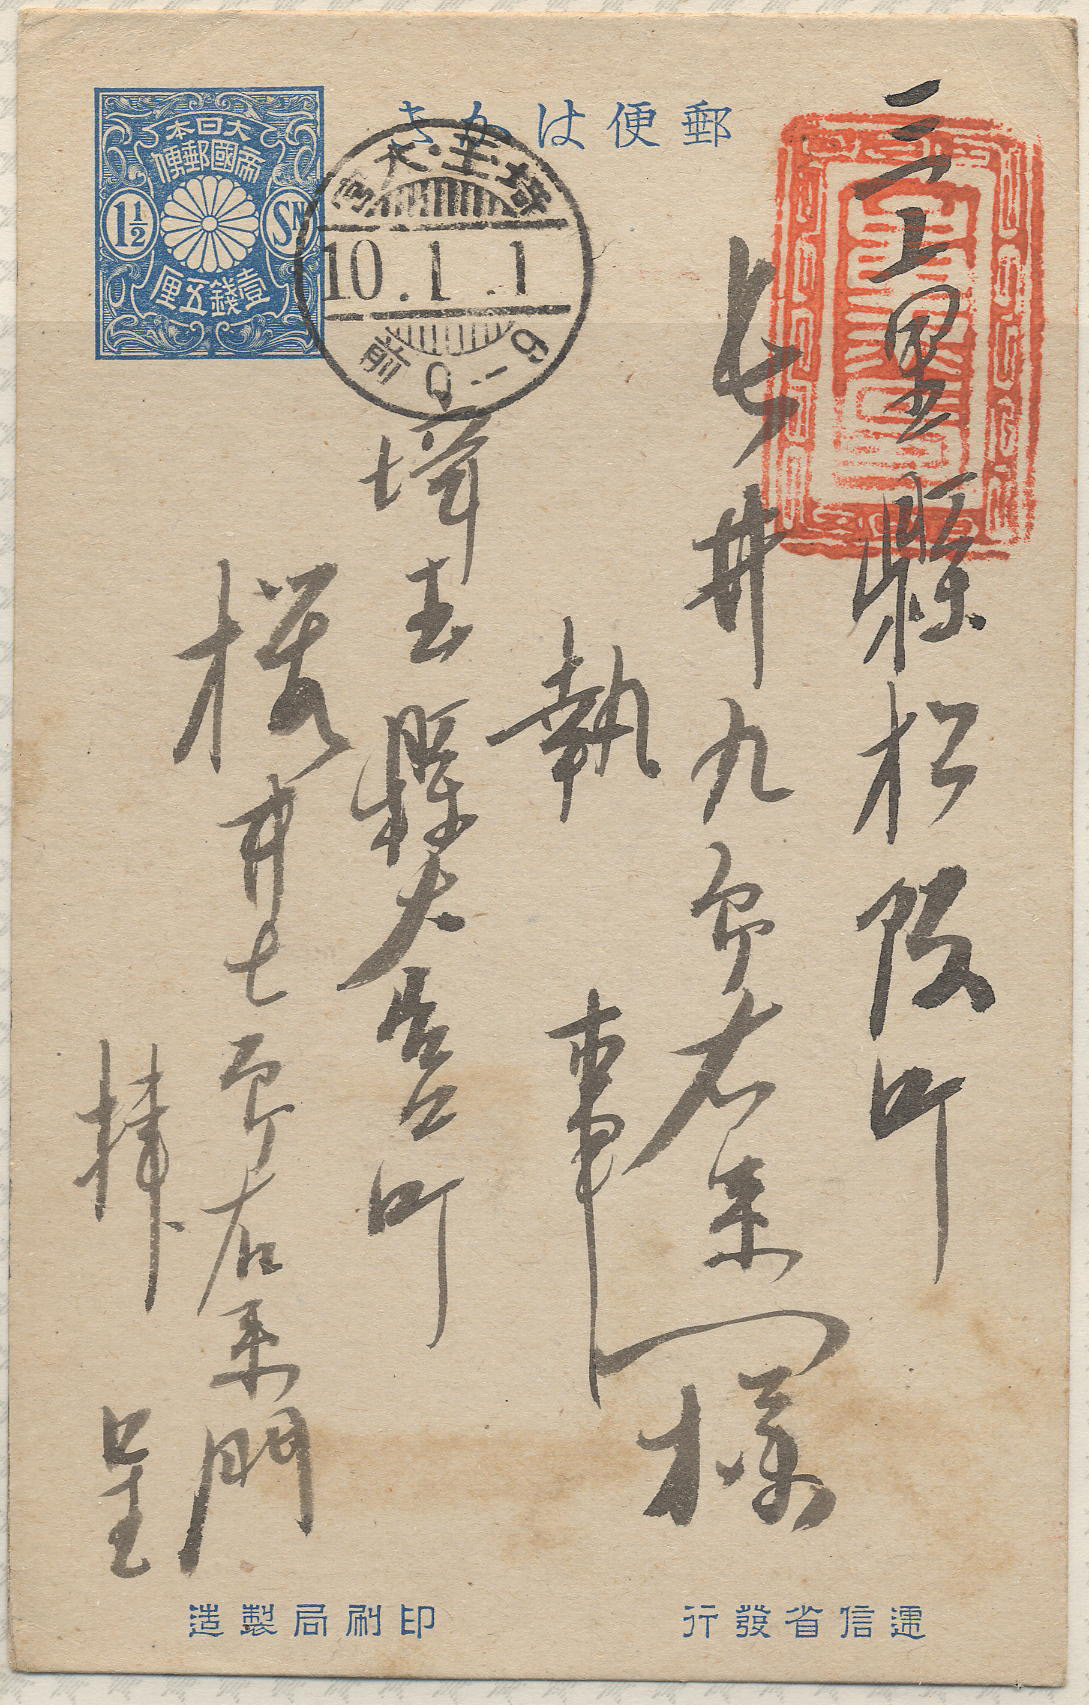 郵便はかき
大日本
帝國郵便
1½ SN
壹錢五厘
埼玉・大宮
10.1.1
前0-9
三重縣松阪町
長井九郎右衛門様
執事
埼玉縣大宮町
櫻井七郎右衛門
拝呈
遞信省發行
印刷局製造